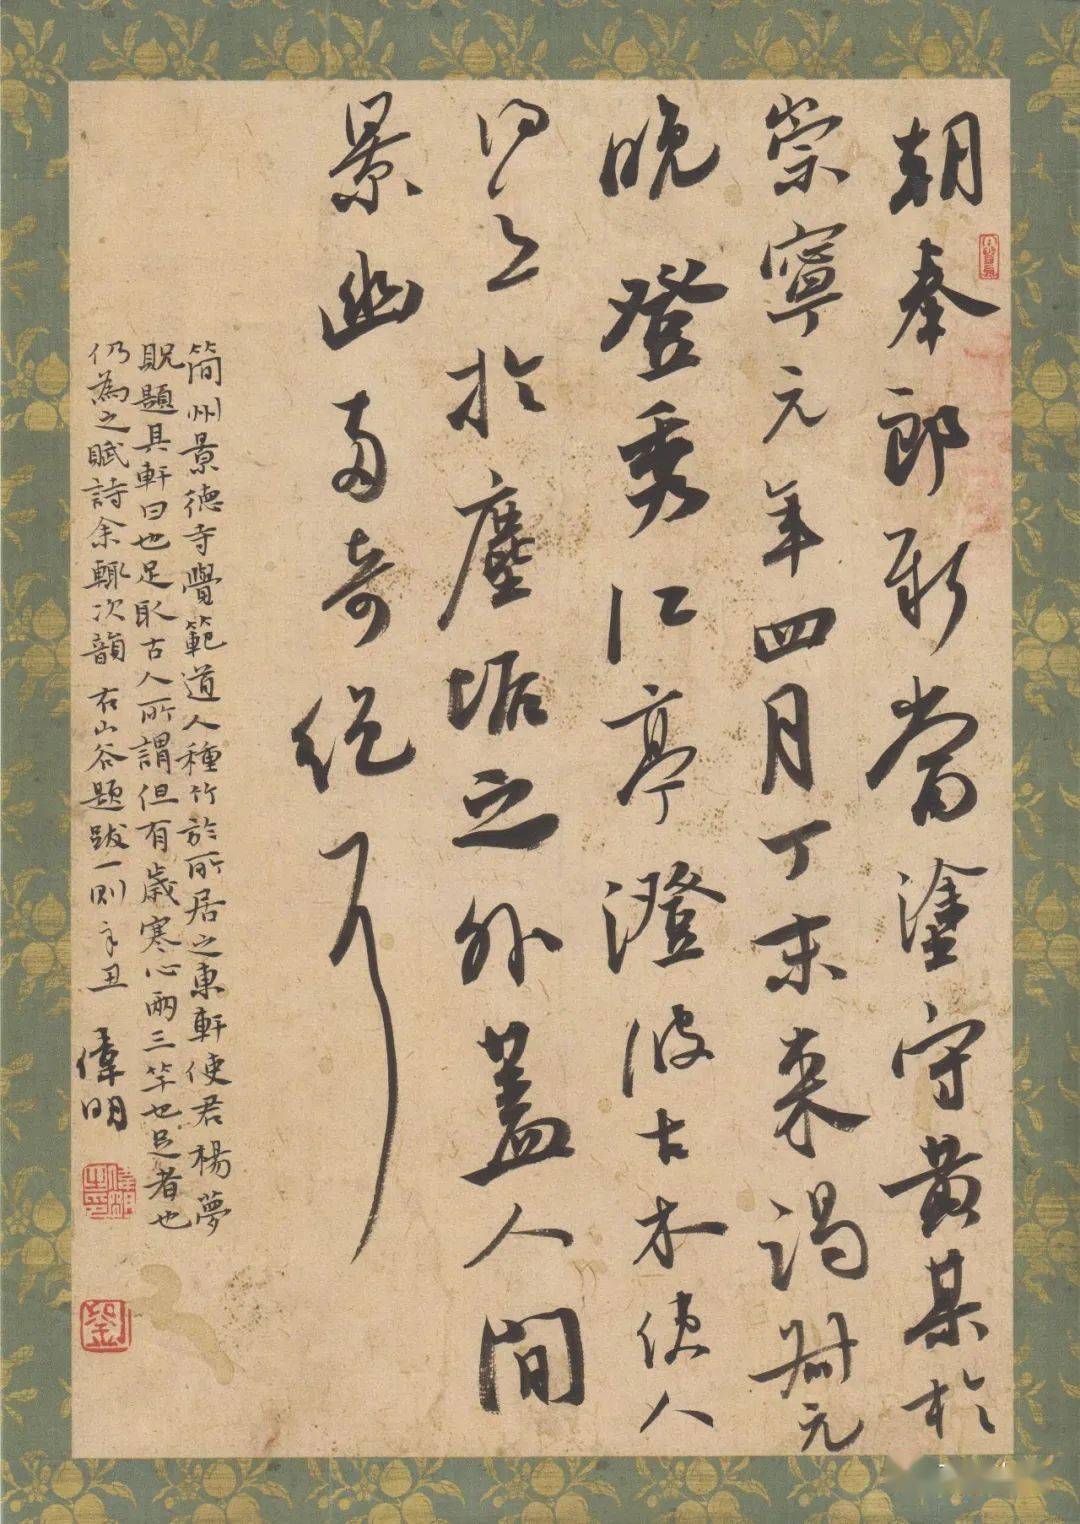 朝奉郎新當塗守黄某於
崇寧元年四月丁未来謁叔元
晚登秀江亭澄波古木使人
得意於塵垢之外蓋人間
景幽兩奇絕耳
簡州景德寺覺範道人種竹於所居之東軒使君楊夢
貺題其軒曰也足取古人所謂但有歲寒心兩三竿也足者也
仍為之賦詩余輒次韻 右山谷題跋一則辛丑 偉明
劉